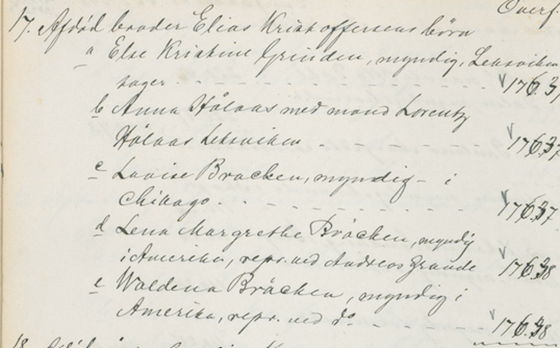 Overf.
17. Afdød broder Elias Kristoffersens børn
a Else Kristine Grinden, myndig, Leksviken
tager - - - √176.37
b Anna Hölaas med mand Lorentz
Hölaas Leksviken - - - √176.37
c Lovise Bracken, myndig - i
Chikago - - - √176.37
d Lena Margrethe Bräcken, myndig
i Amerika, repr. ved Andreas Grande √176.38
e Waldena Bräcken, myndig i
Amerika, repr. ved do - - √176.38
18.